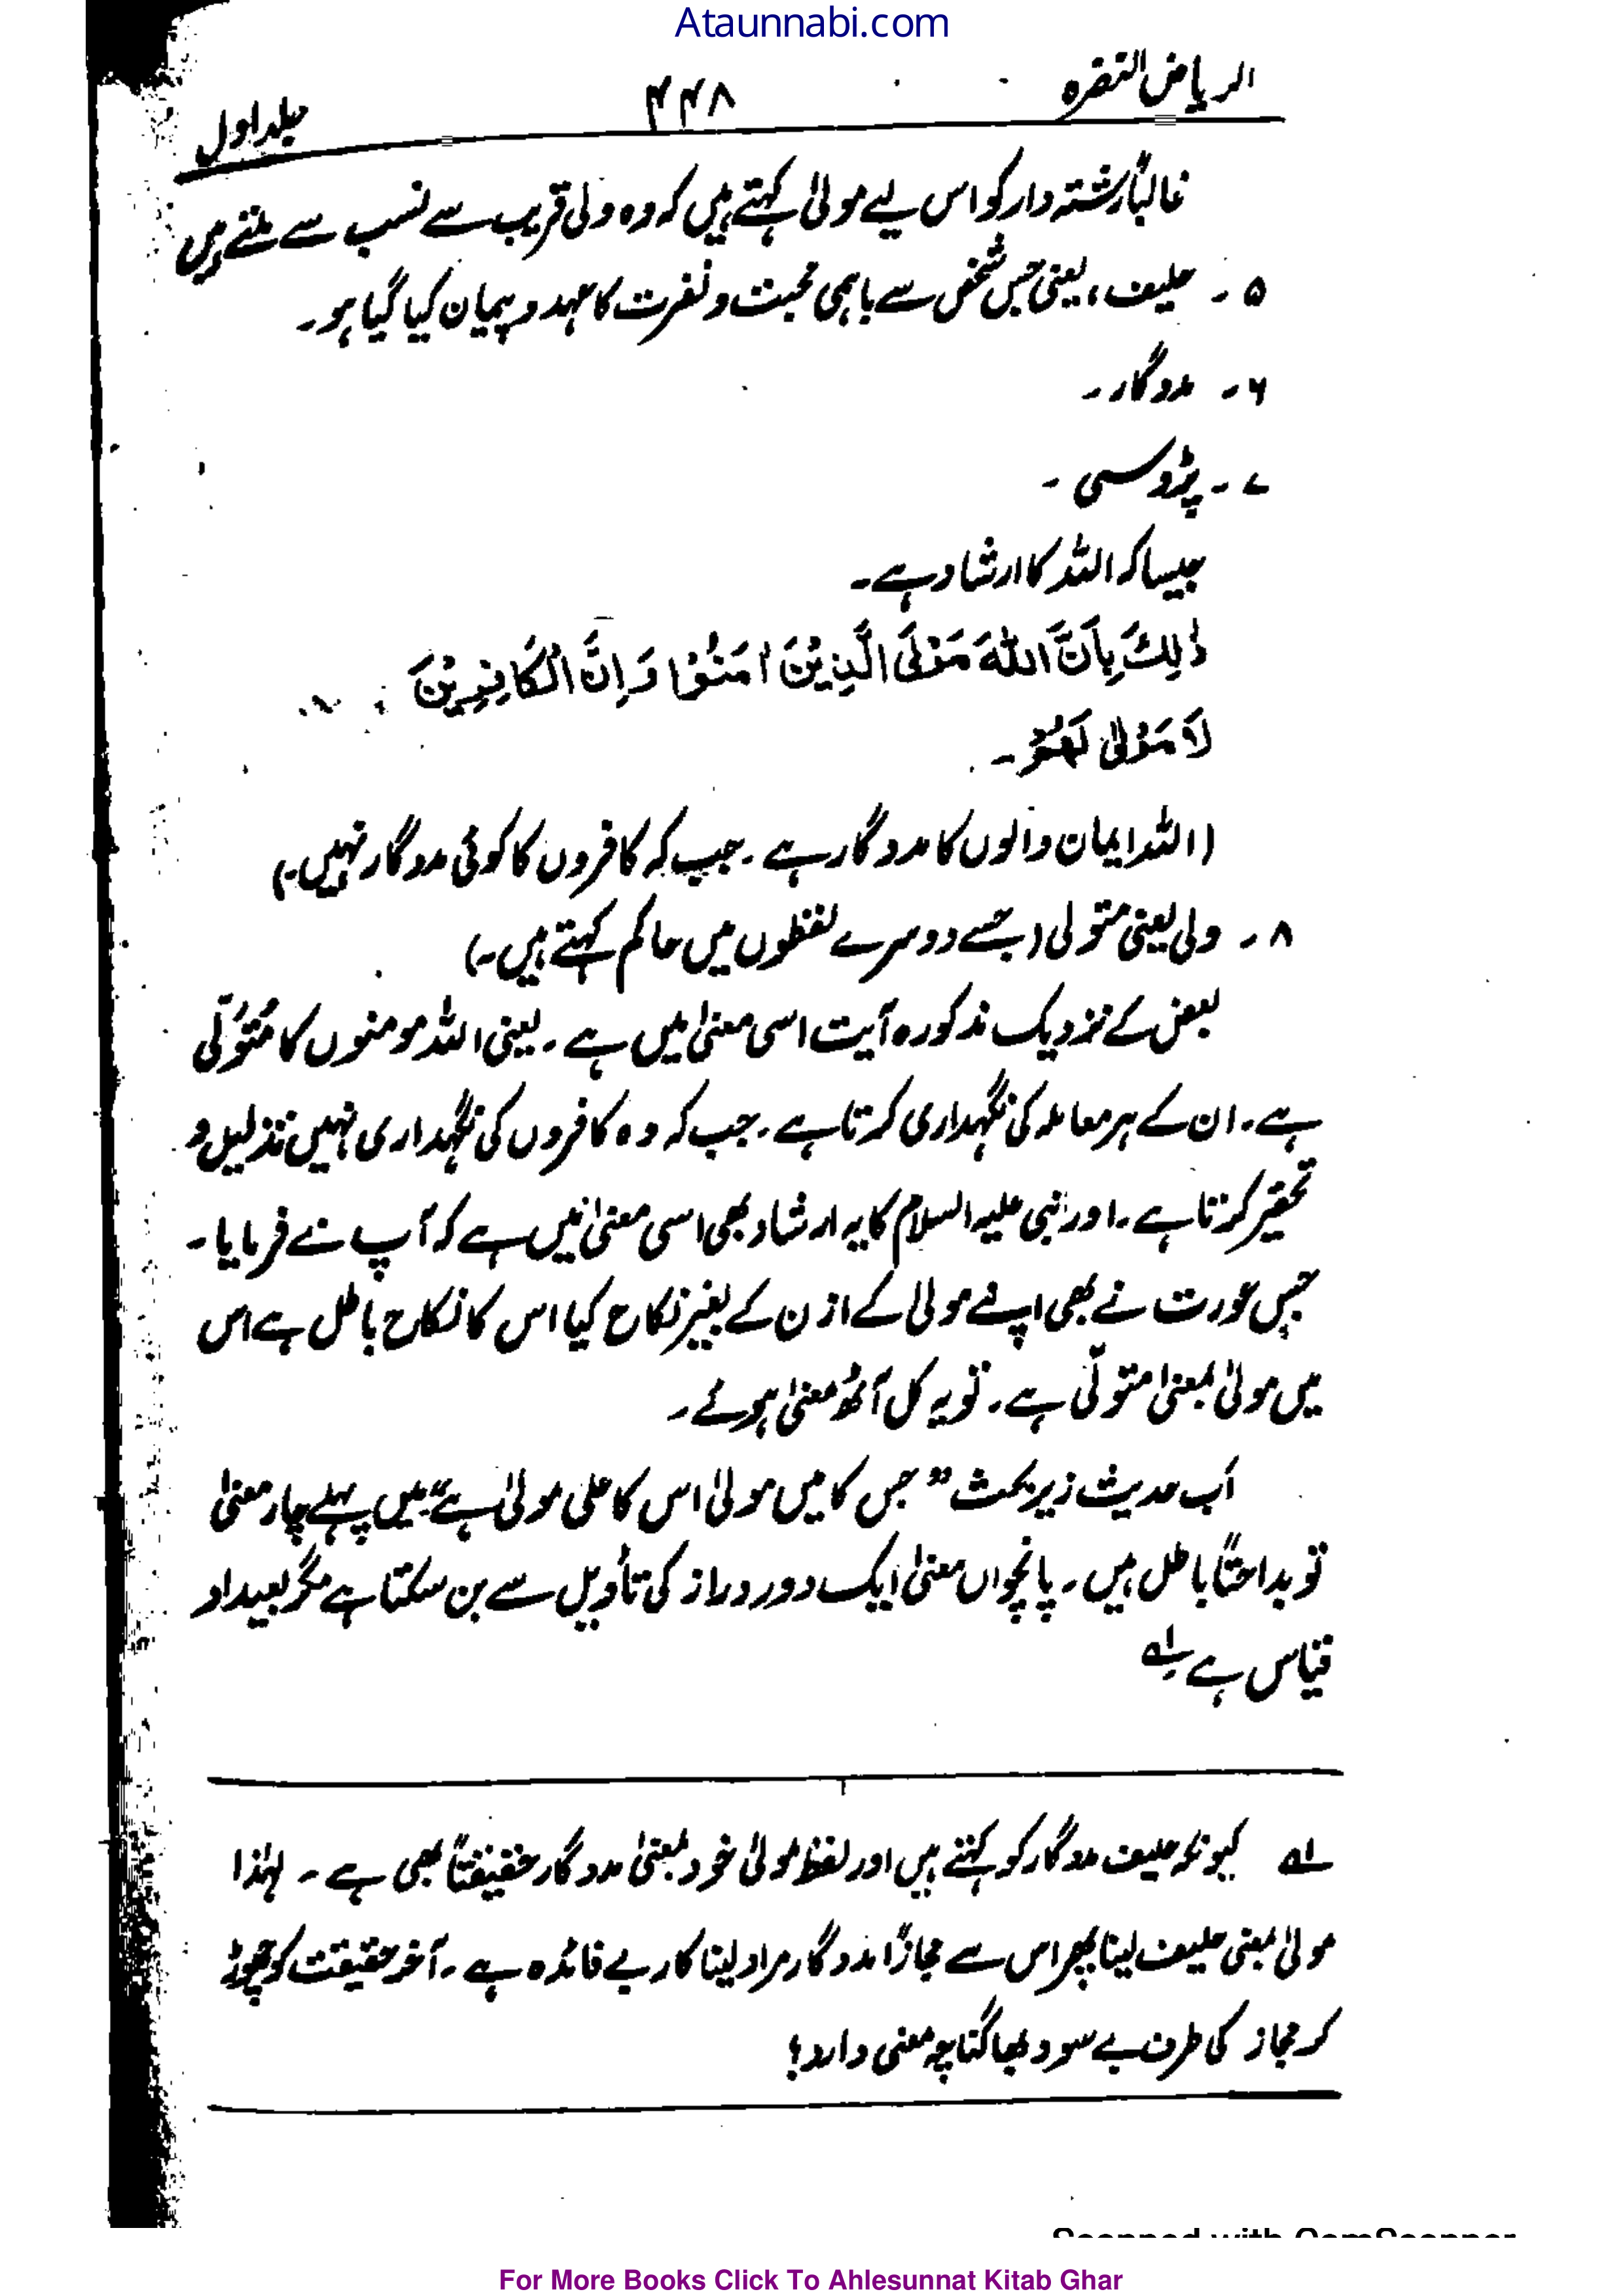 Ataunnabi.com
الریاض النضرہ ۴۴۸ جلد اول
غالباً رشتہ دار کو اس لیے مولیٰ کہتے ہیں کہ وہ ولی قریب سے نسب سے ملتے ہیں
۵۔ حلیف، یعنی جس شخص سے باہمی محبت و نفرت کا عہد و پیمان کیا گیا ہو۔
۶۔ مددگار۔
۷۔ پڑوسی۔
جیسا کہ اللہ کا ارشاد ہے۔
ذٰلِكَ بِاَنَّ اللّٰهَ مَوْلَى الَّذِيْنَ اٰمَنُوْا وَاِنَّ الْكَافِرِيْنَ
لَا مَوْلٰى لَهُمْ۔
(اللہ ایمان والوں کا مددگار ہے۔ جب کہ کافروں کا کوئی مددگار نہیں۔)
۸۔ ولی یعنی متولی (جسے دوسرے لفظوں میں حاکم کہتے ہیں۔)
بعض کے نزدیک مذکورہ آیت اسی معنیٰ میں ہے۔ یعنی اللہ مومنوں کا مُتَوَلّی
ہے۔ ان کے ہر معاملہ کی نگہداری کرتا ہے۔ جب کہ وہ کافروں کی نگہداری نہیں تذلیل و
تحقیر کرتا ہے۔ اور نبی علیہ السلام کا یہ ارشاد بھی اسی معنیٰ میں ہے کہ آپ نے فرمایا۔
جس عورت نے بھی اپنے مولیٰ کے اذن کے بغیر نکاح کیا اس کا نکاح باطل ہے اس
میں مولیٰ بمعنیٰ متولّی ہے۔ تو یہ کل آٹھ معنیٰ ہوئے۔
اَب حدیث زیر بحث ”جس کا میں مولیٰ اس کا علی مولیٰ ہے“ میں پہلے چار معنیٰ
تو بداحتاً باطل ہیں۔ پانچواں معنیٰ ایک دور دراز کی تأویل سے بن سکتا ہے مگر بعید از
قیاس ہے لے
لے کیونکہ حلیف مددگار کو کہتے ہیں اور لفظ مولیٰ خود بمعنیٰ مددگار حقیقتاً بھی ہے۔ لہٰذا
مولیٰ بمعنی حلیف لینا پھر اس سے مجازاً مددگار مراد لینا کار بے فائدہ ہے۔ آخر حقیقت کو چھوڑ
کر مجاز کی طرف بے سود بھاگنا چہ معنی دارد؛
Scanned with CamScanner
For More Books Click To Ahlesunnat Kitab Ghar